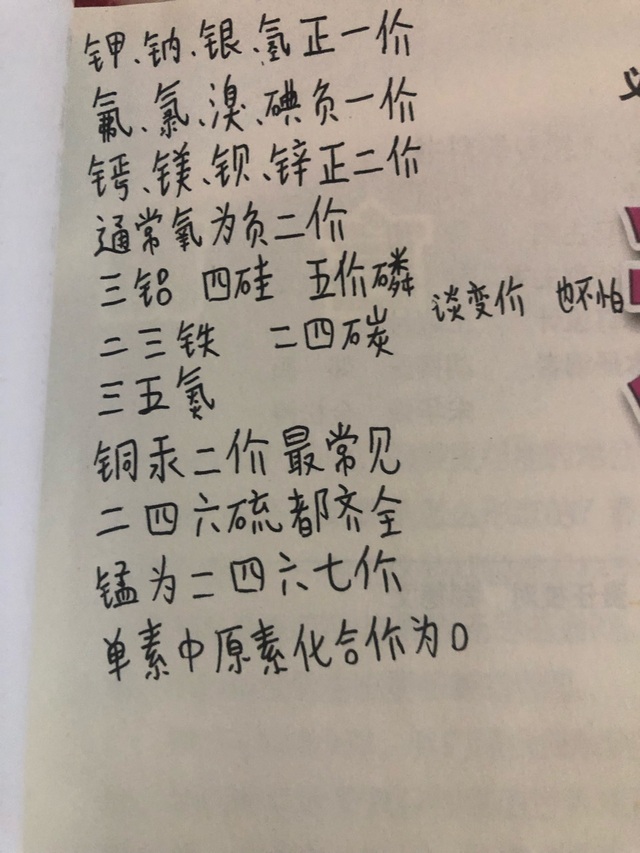 钾、钠、银、氢正一价
氟、氯、溴、碘负一价
钙、镁、钡、锌正二价
通常氧为负二价
三铝 四硅 五价磷
谈变价 也不怕
二三铁 二四碳
三五氮
铜汞二价最常见
二四六硫都齐全
锰为二四六七价
单素中原素化合价为0